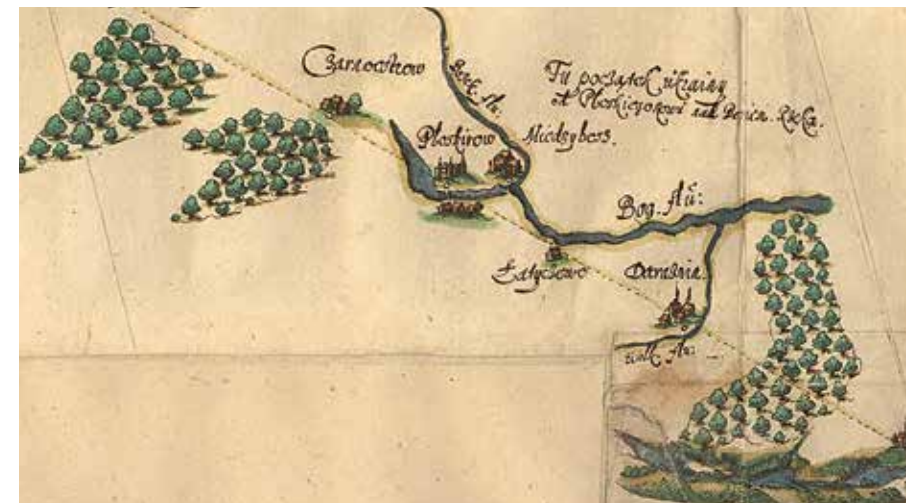 Czarnostrow
Bożek flu:
Tu początek Ukrainy
od Ploskierowa
Rzeka.
Ploskirow
Miedzyboss.
Bog. flu:
Latyczowo
Daraznia.
wolk flu: